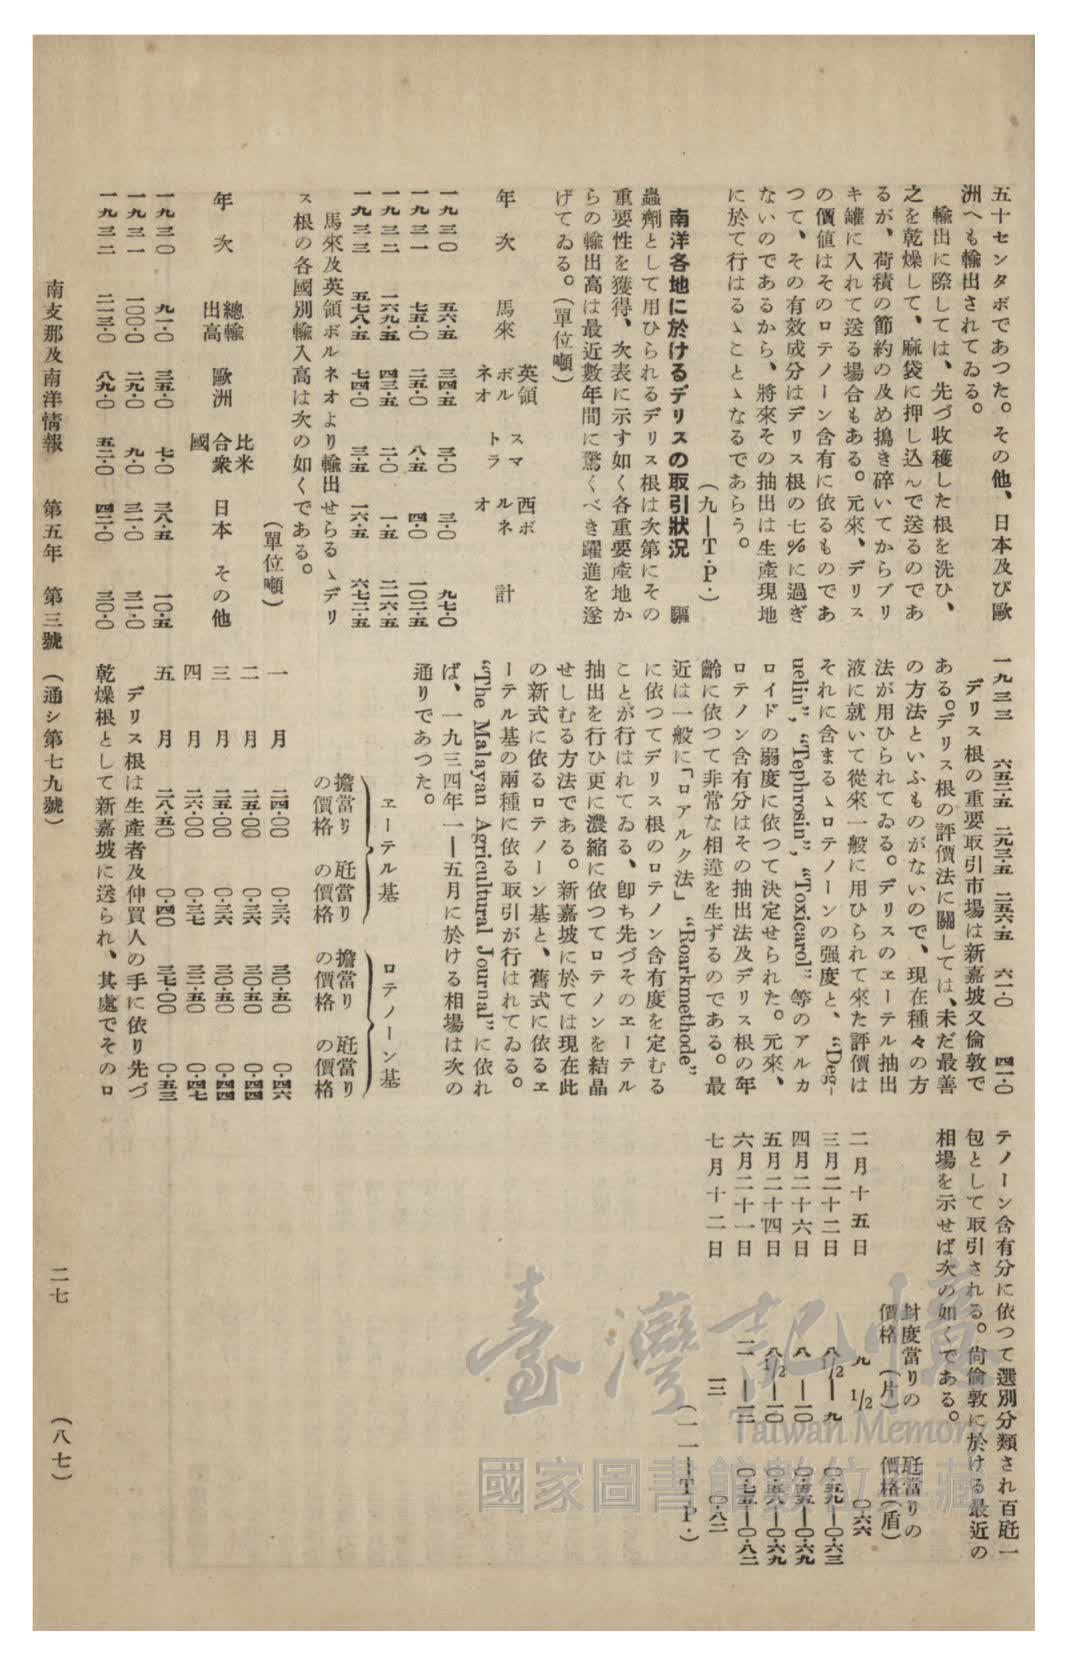 五十センタボであつた。その他、日本及び歐
洲へも輸出されてゐる。
輸出に際しては、先づ收穫した根を洗ひ、
之を乾燥して、麻袋に押し込んで送るのであ
るが、荷積の節約の及め搗き碎いてからブリ
キ罐に入れて送る場合もある。元來、デリス
の價値はそのロテノーン含有に依るものであ
つて、その有效成分はデリス根の七%に過ぎ
ないのであるから、將來その抽出は生產現地
に於て行はるゝことゝなるであらう。
(九—T.P.)
南洋各地に於けるデリスの取引狀況 驅
蟲劑として用ひられるデリス根は次第にその
重要性を獲得、次表に示す如く各重要產地か
らの輸出高は最近數年間に驚くべき躍進を遂
げてゐる。(單位噸)
年次 馬來 英領ボルネオ スマトラ 西ボルネオ 計
一九三〇 五六・五 三四・五 三・〇 三・〇 九七・〇
一九三一 七五・〇 二五・〇 八・五 四・〇 一〇二・五
一九三二 一六九・五 四三・五 二・〇 一・五 二一六・五
一九三三 五七八・五 七四・〇 三・五 一六・五 六七二・五
馬來及英領ボルネオより輸出せらるゝデリ
ス根の各國別輸入高は次の如くである。
(單位噸)
年次 總輸出高 歐洲 比米合衆國 日本 その他
一九三〇 九一・〇 三五・〇 七・〇 三八・五 一〇・五
一九三一 一〇〇・〇 二九・〇 九・〇 三一・〇 三一・〇
一九三二 二一三・〇 八九・〇 五二・〇 四二・〇 三〇・〇
一九三三 六五二・五 二九三・五 二五六・五 六一・〇 四一・〇
デリス根の重要取引市場は新嘉坡又倫敦で
ある。デリス根の評價法に關しては、未だ最善
の方法といふものがないので、現在種々の方
法が用ひられてゐる。デリスのエーテル抽出
液に就いて從來一般に用ひられて來た評價は
それに含まるゝロテノーンの强度と、“Deg-
uelin”, “Tephrosin”, “Toxicarol” 等のアルカ
ロイドの弱度に依つて決定せられた。元來、
ロテノン含有分はその抽出法及デリス根の年
齡に依つて非常な相違を生ずるのである。最
近は一般に「ロアルク法」 “Roarkmethode”
に依つてデリス根のロテノン含有度を定むる
ことが行はれてゐる、卽ち先づそのエーテル
抽出を行ひ更に濃縮に依つてロテノンを結晶
せしむる方法である。新嘉坡に於ては現在此
の新式に依るロテノーン基と、舊式に依るエ
ーテル基の兩種に依る取引が行はれてゐる。
“The Malayan Agricultural Journal” に依れ
ば、一九三四年一—五月に於ける相場は次の
通りであつた。
エーテル基 ロテノーン基
擔當りの價格 瓩當りの價格 擔當りの價格 瓩當りの價格
一月 二四・〇〇 〇・三六 三〇・五〇 〇・四六
二月 二五・〇〇 〇・三六 三〇・五〇 〇・四四
三月 二五・〇〇 〇・三六 三〇・五〇 〇・四四
四月 二六・〇〇 〇・三七 三一・五〇 〇・四七
五月 二八・五〇 〇・四〇 三七・〇〇 〇・五三
デリス根は生產者及仲買人の手に依り先づ
乾燥根として新嘉坡に送られ、其處でそのロ
テノーン含有分に依つて選別分類され百瓩一
包として取引される。尙倫敦に於ける最近の
相場を示せば次の如くである。
封度當りの價格(片) 瓩當りの價格(盾)
二月十五日 九 1/2 〇・六六
三月二十二日 八1/2—九 〇・五九—〇・六三
四月二十六日 八—一〇 〇・五五—〇・六九
五月二十四日 八1/2—一〇 〇・五八—〇・六九
六月二十一日 一一—一三 〇・七五—〇・八二
七月十二日 一三 〇・八二
(一一—T.P.)
南支那及南洋情報 第五年 第三號 (通シ第七九號) 二七 (八七)
臺灣記憶
Taiwan Memory
國家圖書館數位典藏